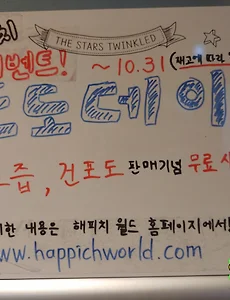 THE STARS TWINKLED
벤트! ~10.31 (재고에 따라
포도데이
즙, 건포도 판매기념 무료시
한 내용은 해피치 월드 홈페이지에서!
www.happichworld.com